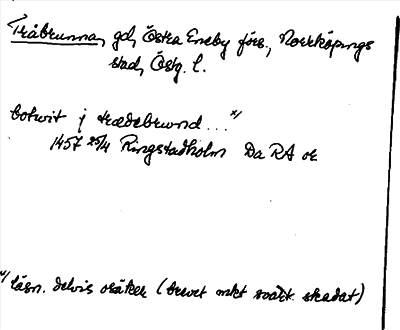 Tråbrunna, gd, Östra Eneby förs., Norrköpings
stad, Östg. l.
botwit j trædebrwnd...x/
1457 25/4 Ringstadholm Da RA or
x/ läsn. delvis osäker (brevet mkt svårt skadat)